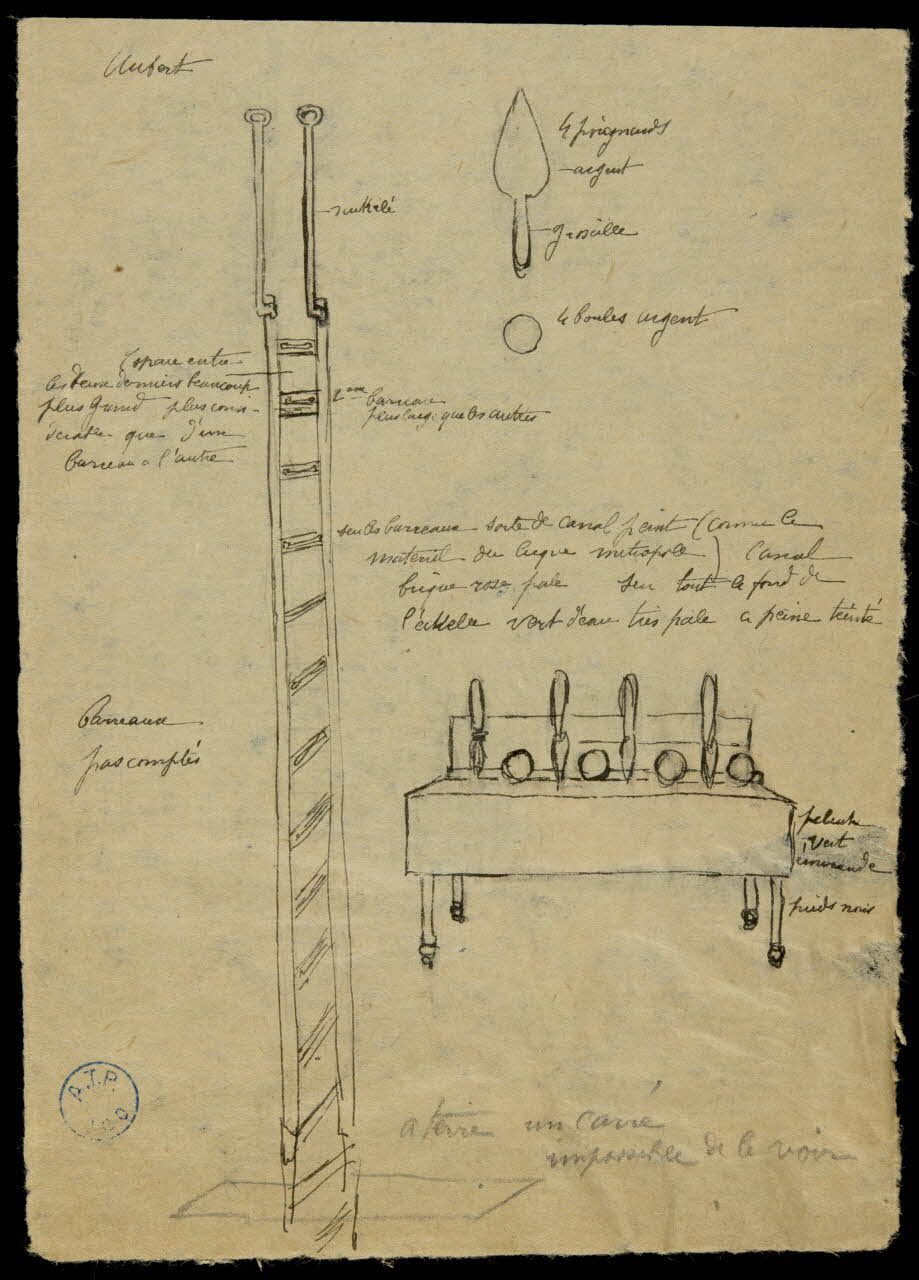 Aubert
4 poignards
argent
nickelé
groseille
4 boules argent
Espace entre
les deux derniers beaucoup
plus grand plus consi-
dérable que d'un
barreau a l'autre
2eme barreau
plus large que les autres
sur les barreaux sorte de canal peint (comme le
materiel du cirque metropole) canal
brique rose pale sur tout le fond de
l'échelle vert d'eau très pale a peine teinté
Barreaux
pas comptés
peluche
vert
émeraude
pieds noirs
A.T.P.
a terre un carré
impossible de le voir